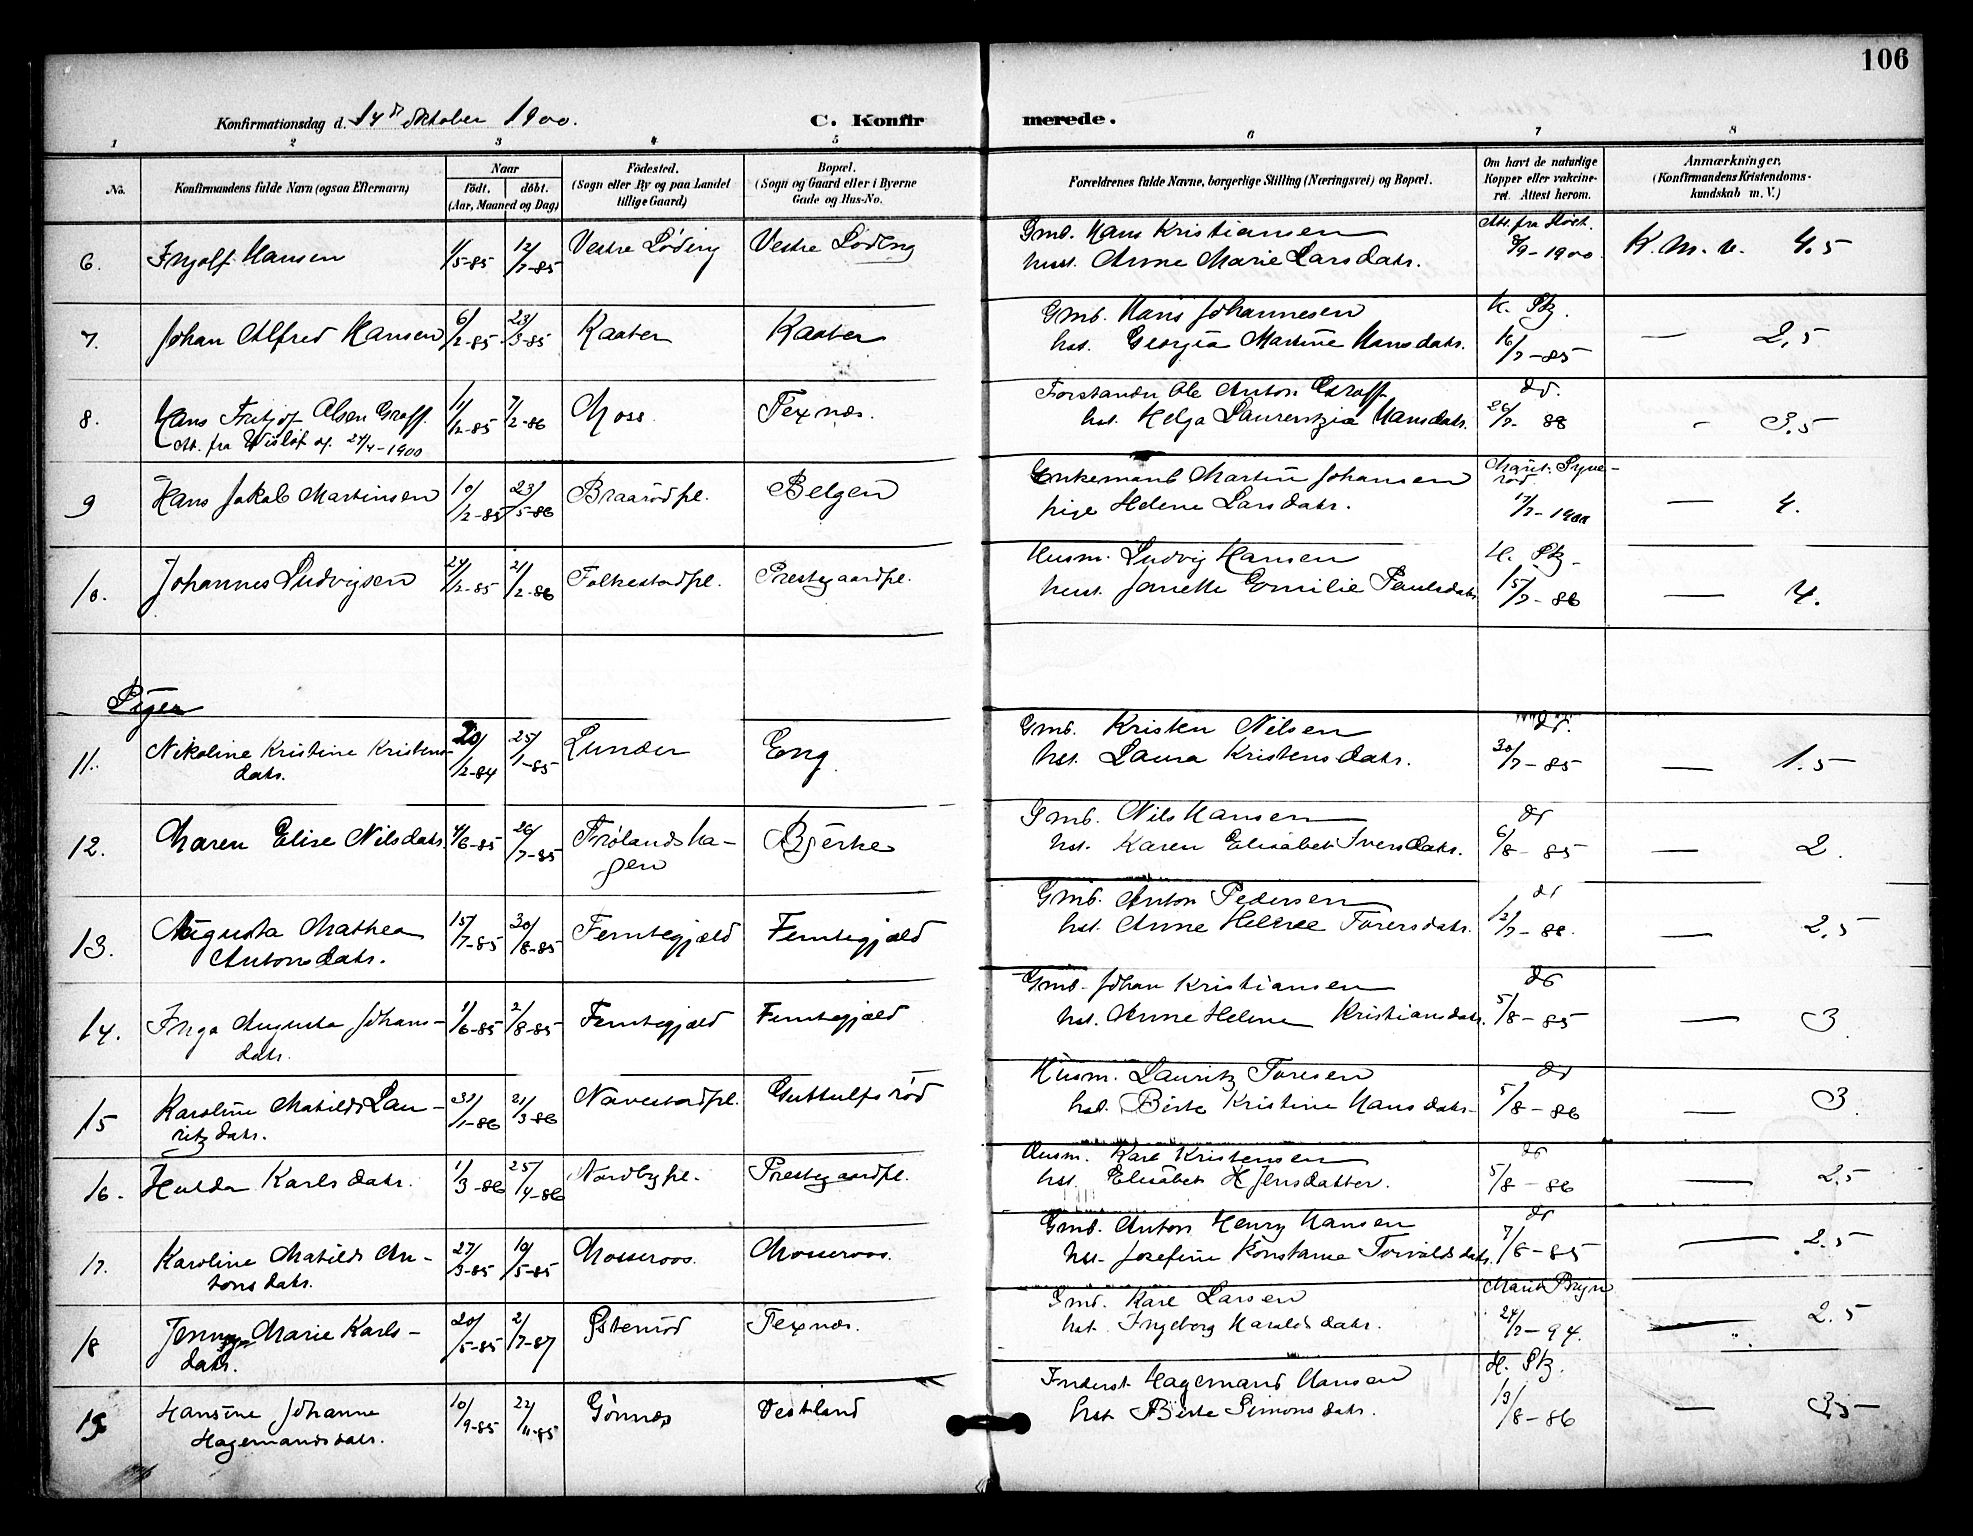 106
Konfirmationsdag d. 14de Oktober 1900. C. Konfirmerede.
1 2 3 4 5 6 7 8
No. Konfirmandens fulde Navn (ogsaa Efternavn) Naar födt. döbt. (Aar, Maaned og Dag) Födested. (Sogn eller By og paa Landet tillige Gaard) Bopæl. (Sogn og Gaard eller i Byerne Gade og Hus-No. Forældrenes fulde Navne, borgerlige Stilling (Næringsvei) og Bopæl. Om havt de naturlige Kopper eller vakcineret. Attest herom. Anmærkninger. (Konfirmandens Kristendomskundskab m. V.)
6. Ingolf Hansen 1/5-85 12/7-85 Vestre Löding Vestre Löding Gmd. Hans Kristiansen
hust. Anne Marie Larsdatr. 8/9-1900. K. M. v. 4.5
7. Johan Alfred Hansen 6/2-85 23/3-85 Kaaten Kaaten Gmd. Hans Johannesen
hst. Georgia Martine Hansdatr. 16/7-85 — 2,5
8. Hans Fritjof Olsen Graff. 11/12-85 7/2-86 Moss Texnæs. Forstander Ole Anton Graff do.
Att. fra 24/4-1900 hst. Helga Laurentzia Hansdatr. 26/7-88 - 3.5
9 Hans Jakob Martinsen 10/12-85 23/5-86 Braarödpl. Belgen Enkemand Martin Johansen
pige Helene Larsdatr. 17/7-1900 — 4.
10. Johannes Ludvigsen 27/12-85 21/2-86 Folkestadpl. Prestegaardpl. Husm. Ludvig Hansen
hust. Janette Emilie Paulsdatr. 15/7-86 — 4.
Piger
11. Nikoline Kristine Kristensdatr. 20/12-84 25/1-85 Lunder Eng Gmd. Kristen Nilsen do.
hst. Laura Kristensdatr. 30/7-85 — 1.5
12. Maren Elise Nilsdatr. 4/6-85 26/7-85 Frölandshagen Bjerke Gmd. Nils Hansen do
hst. Karen Elisabet Iversdatr. 6/8-85 — 2.
13. Augusta Mathea 15/7-85 30/8-85 Femtegjæld Femtegjæld Gmd. Anton Pedersen do
Antonsdatr. hst. Anne Helene Torersdatr. 12/7-88. — 2,5
14. Inga Augusta Johansdatr. 1/6-85 2/8-85 Femtegjæld Femtegjæld Gmd. Johan Kristiansen do
hst. Anne Helene Kristiansdatr. 5/8-85 — 3
15 Karoline Matilde Lauritzdatr. 1-86 21/3-86 Navestadpl. Guttulfsröd Husm. Lauritz Toresen do
hst. Birte Kristine Hansdatr. 5/8-86 — 3.
16. Hulda Karlsdatr. 1/3-86 25/4-86 Nordbypl. Prestegaardpl. Husm. Karl Kristensen do
hst. Elisabet H Jensdatter. 5/8-86 — 2.5
17. Karoline Matilde Antonsdatr. 27/3-85 10/5-85 Mosseroos. Mosseroos. Gmd. Anton Henry Hansen do
hst. Josefine Konstanse Torvaldsdatr. 7/8-85 — 2.5
18 Jenny Marie Karlsdatr. 20/5-85 2/7-87 Östenröd Texnæs. Gmd. Karl Larsen
hst. Ingeborg Haraldsdatr. 24/7-94. — 2.5
19 Hansine Johanne 10/9-85 22/11-85 Gönnæs Vestland Inderst Hagemand Hansen
Hagemandsdatr. hst Birte Simonsdatr. 13/8-86 — 3,5